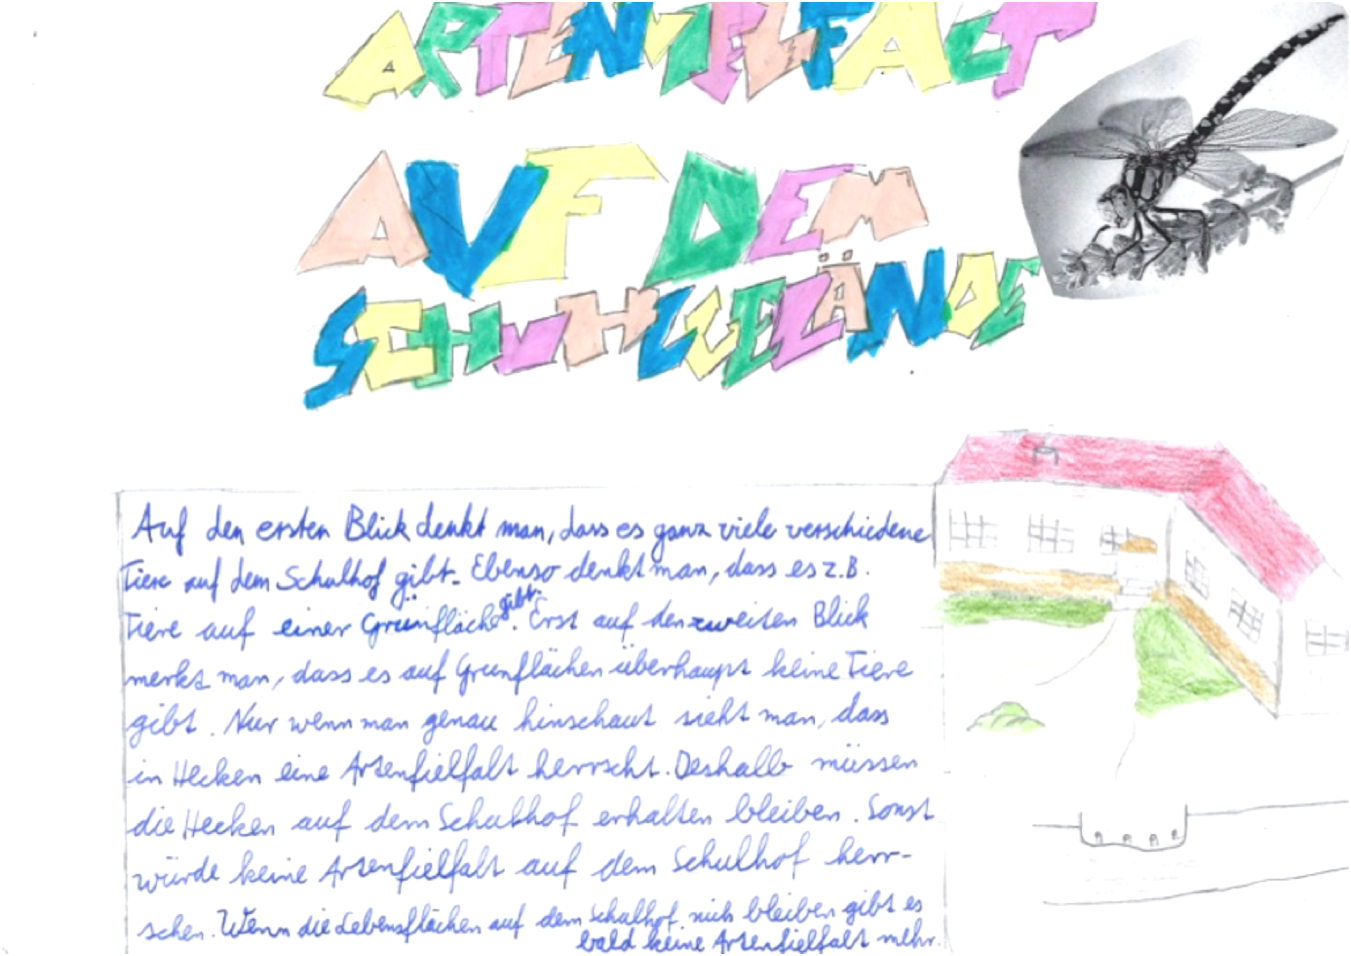 ARTENVIELFALT
AUF DEM
SCHUHLGELÄNDE
Auf den ersten Blick denkt man, dass es ganz viele verschiedene
Tiere auf dem Schulhof gibt. Ebenso denkt man, dass es z.B.
Tiere auf einer Grünfläche gibt. Erst auf den zweiten Blick
merkt man, dass es auf Grünflächen überhaupt keine Tiere
gibt. Nur wenn man genau hinschaut sieht man, dass
in Hecken eine Artenfielfalt herrscht. Deshalb müssen
die Hecken auf dem Schulhof erhalten bleiben. Sonst
würde keine Artenfielfalt auf dem Schulhof herr-
schen. Wenn die Lebensflächen auf dem Schulhof nich bleiben gibt es
bald keine Artenfielfalt mehr.